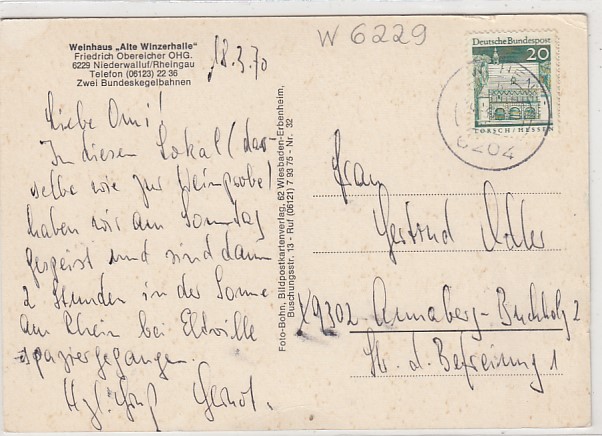 Weinhaus „Alte Winzerhalle"
Friedrich Obereicher OHG.
6229 Niederwalluf/Rheingau
Telefon (06123) 22 36
Zwei Bundeskegelbahnen
18.3.70
W 6229
Deutsche Bundespost
20
LORSCH/HESSEN
6204
Liebe Omi!
In diesem Lokal (das-
selbe wie zur Weinprobe)
haben wir am Sonntag
gespeist und sind dann
2 Stunden in der Sonne
am Rhein bei Eltville
spazierengegangen.
Hzl. Gruß Gernot.
Foto-Bohn, Bildpostkartenverlag, 62 Wiesbaden-Erbenheim,
Buschungsstr. 13 - Ruf (06121) 7 93 75 - Nr. 32
Frau
Gertrud Adler
X9302 Annaberg-Buchholz 2
Str. d. Befreiung 1